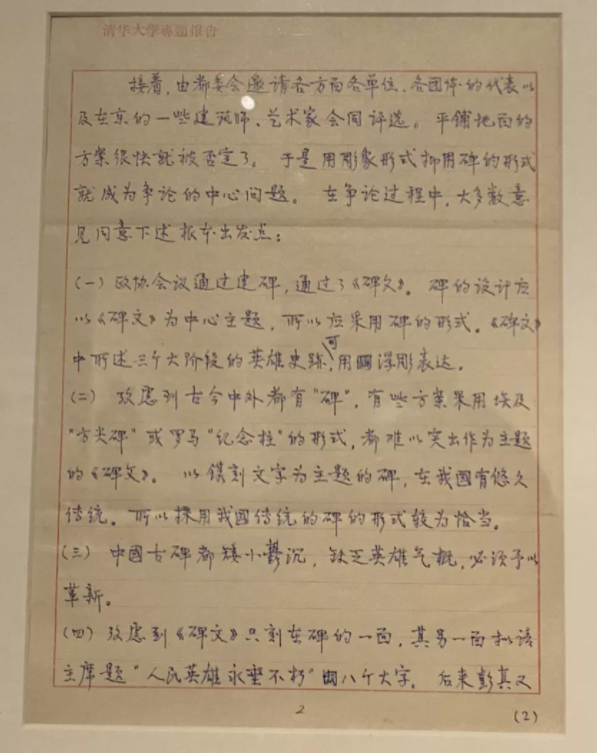 清华大学专题报告
接着，由都委会邀请各方面各单位、各团体的代表以
及在京的一些建筑师、艺术家会同评选。平铺地面的
方案很快就被否定了。于是用雕象形式抑用碑的形式
就成为争论的中心问题。在争论过程中，大多数意
见同意下述根本出发点：
（一）政协会议通过建碑，通过了《碑文》。碑的设计应
以《碑文》为中心主题，所以应采用碑的形式。《碑文》
可
中所述三个大阶段的英雄史跡，用浮彫表达。
（二）攷虑到古今中外都有“碑”，有些方案采用埃及
“方尖碑”或罗马“纪念柱”的形式，都难以突出作为主题
的《碑文》。以镌刻文字为主题的碑，在我國有悠久
传统。所以採用我國传统的碑的形式较为恰当。
（三）中國古碑都矮小鬱沉，缺乏英雄气概，必须予以
革新。
（四）攷虑到《碑文》只刻在碑的一面，其另一面拟请
主席题“人民英雄永垂不朽”八个大字。后来彭真又
2
（2）